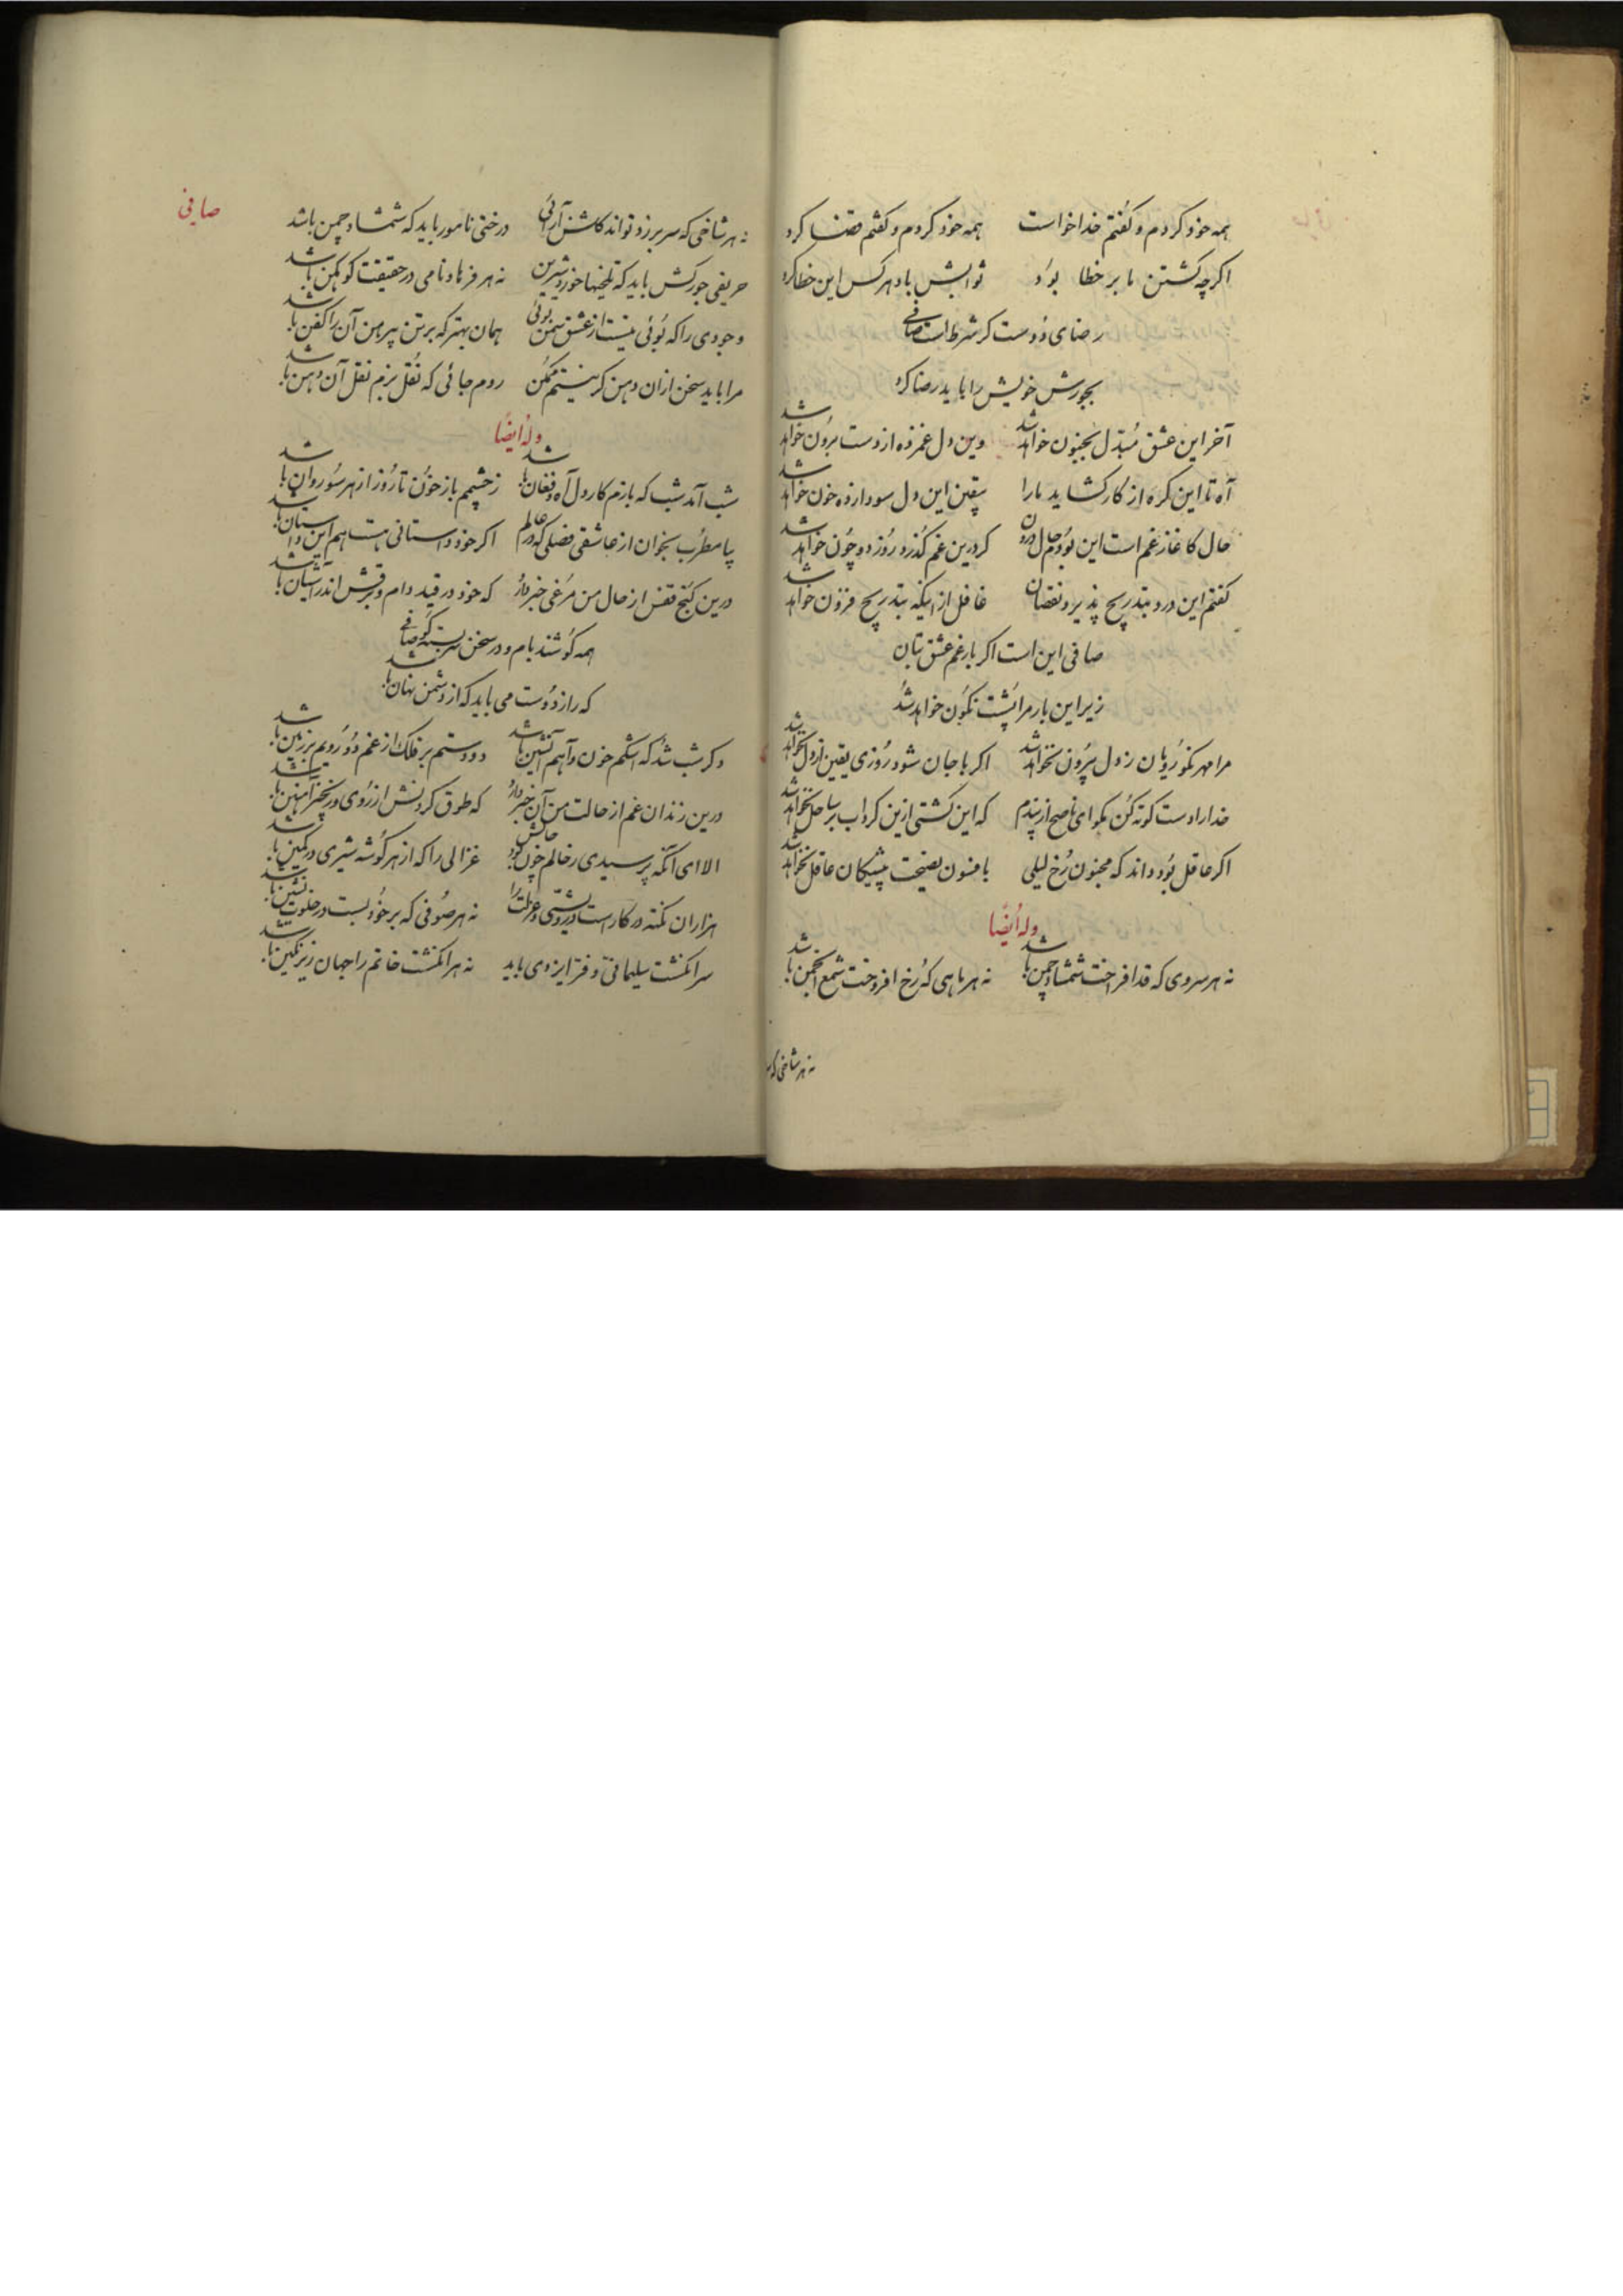 همه خود کردم و کفتم خدا خواست همه خود کردم و کفتم قضا کرد
اکرچه کشتن ما بر خطا بود ثوابش باد هرکس این خطا کرد
رضای دوست کر شرط است صافی
بجورش خویش را باید رضا کرد
آخر این عشق مبدل بجنون خواهد شد وین دل غمزده از دست برون خواهد شد
آه تا این کره از کار کشاید ما را بیقین این دل سودازده خون خواهد شد
حال کاغاز غم است این بودم حال درون کر درین غم کذرد روز دو چون خواهد شد
کفتم این درد بتدریج پذیرد نقصان غافل از اینکه بتدریج فزون خواهد شد
صافی این است اکر بار غم عشق بتان
زیر این بار مرا پشت نکون خواهد شد
مرا مهر نکورویان ز دل بیرون نخواهد شد اکر با جان شود روزی یقین از دل نخواهد شد
خدا را دست کوته کن مکو ای ناصح از پندم که این کشتی ازین کرداب بر ساحل نخواهد شد
اکر عاقل بود داند که مجنون رخ لیلی بافسون نصیحت پیشکان عاقل نخواهد شد
وله ایضا
نه هر سروی که قد افراخت شمشاد چمن باشد نه هر ماهی که رخ افروخت شمع انجمن باشد
نه هر شاخی که
صافی
نه هر شاخی که سر بر زد تواند کلشن آرائی درختی نامور باید که شمشاد چمن باشد
حریفی جورکش باید که تلخیها خورد شیرین نه هر فرهاد نامی در حقیقت کوهکن باشد
وجودی را که بوئی نیست از عشق سمن بوئی همان بهتر که بر تن پیرهن آن را کفن باشد
مرا باید سخن ازان دهن کر نیستم ممکن روم جائی که نقل بزم نقل آن دهن باشد
وله ایضا
شب آمد شب که بازم کار دل آه و فغان باشد ز چشمم باز خون تا روز از هر سو روان باشد
بیا مطرب بخوان از عاشقی فصلی که در عالم اکر خود داستانی هست هم این داستان باشد
درین کنج قفس از حال من مرغی خبر دارد که خود در قید دام و برقش اندر آشیان باشد
همه کوشند بام و در سخن سربسته کو صافی
که راز دوست می باید که از دشمن نهان باشد
دکر شب شد که اشکم خون و آهم آتشین باشد دو دستم بر فلک از غم دو رویم بر زمین باشد
درین زندان غم از حالت من آن خبر دارد که طوق کردنش از روی زنجیر آهنین باشد
الا ای آنکه پرسیدی ز حالم چون بود حالش غزالی را که از هر کوشه شیری در کمین باشد
هزاران نکته در کار است درویشی و عزلت را نه هر صوفی که بر خود بست در خلوت نشین باشد
سر انکشت سلیمانی و فر ایزدی باید نه هر انکشت خاتم را جهان زیر نکین باشد